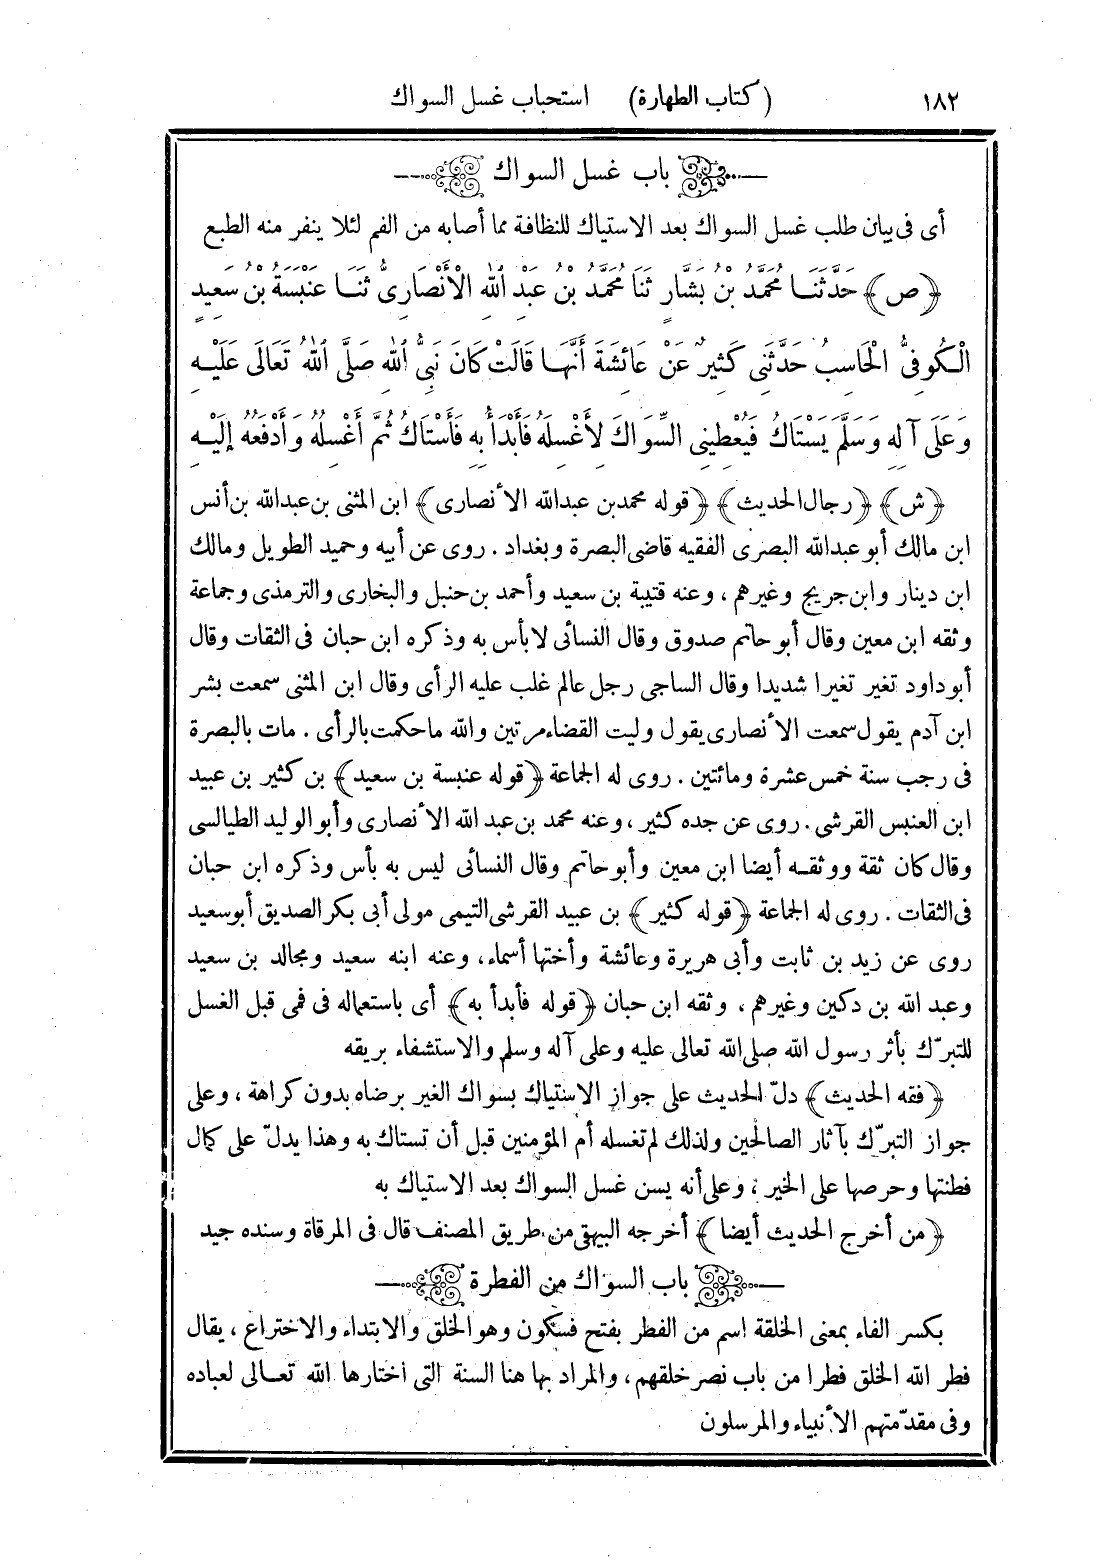 ١٨٢ (كتاب الطهارة) استحباب غسل السواك
باب غسل السواك
أى فى بيان طلب غسل السواك بعد الاستياك للنظافة مما أصابه من الفم لئلا ينفر منه الطبع
﴿ص﴾ حَدَّثَنَا مُحَمَّدُ بْنُ بَشَّارٍ ثَنَا مُحَمَّدُ بْنُ عَبْدِ اللهِ الْأَنْصَارِىُّ ثَنَا عَنْبَسَةُ بْنُ سَعِيدٍ
الْكُوفِىُّ الْحَاسِبُ حَدَّثَنِى كَثِيرٌ عَنْ عَائِشَةَ أَنَّهَا قَالَتْ كَانَ نَبِىُّ اللهِ صَلَّى اللهُ تَعَالَى عَلَيْهِ
وَعَلَى آلِهِ وَسَلَّمَ يَسْتَاكُ فَيُعْطِينِى السِّوَاكَ لِأَغْسِلَهُ فَأَبْدَأُ بِهِ فَأَسْتَاكُ ثُمَّ أَغْسِلُهُ وَأَدْفَعُهُ إِلَيْهِ
﴿ش﴾ ﴿رجال الحديث﴾ ﴿قوله محمد بن عبدالله الأنصارى﴾ ابن المثنى بن عبدالله بن أنس
ابن مالك أبو عبدالله البصرى الفقيه قاضى البصرة وبغداد. روى عن أبيه وحميد الطويل ومالك
ابن دينار وابن جريج وغيرهم، وعنه قتيبة بن سعيد وأحمد بن حنبل والبخارى والترمذى وجماعة
وثقه ابن معين وقال أبو حاتم صدوق وقال النسائى لا بأس به وذكره ابن حبان فى الثقات وقال
أبو داود تغير تغيرا شديدا وقال الساجى رجل عالم غلب عليه الرأى وقال ابن المثنى سمعت بشر
ابن آدم يقول سمعت الأنصارى يقول وليت القضاء مرتين والله ما حكمت بالرأى. مات بالبصرة
فى رجب سنة خمس عشرة ومائتين. روى له الجماعة ﴿قوله عنبسة بن سعيد﴾ بن كثير بن عبيد
ابن العنبس القرشى. روى عن جده كثير، وعنه محمد بن عبد الله الأنصارى وأبو الوليد الطيالسى
وقال كان ثقة ووثقه أيضا ابن معين وأبو حاتم وقال النسائى ليس به بأس وذكره ابن حبان
فى الثقات. روى له الجماعة ﴿قوله كثير﴾ بن عبيد القرشى التيمى مولى أبى بكر الصديق أبو سعيد
روى عن زيد بن ثابت وأبى هريرة وعائشة وأختها أسماء، وعنه ابنه سعيد ومجالد بن سعيد
وعبد الله بن دكين وغيرهم، وثقه ابن حبان ﴿قوله فأبدأ به﴾ أى باستعماله فى فمى قبل الغسل
للتبرّك بأثر رسول الله صلى الله تعالى عليه وعلى آله وسلم والاستشفاء بريقه
﴿فقه الحديث﴾ دلّ الحديث على جواز الاستياك بسواك الغير برضاه بدون كراهة، وعلى
جواز التبرّك بآثار الصالحين ولذلك لم تغسله أم المؤمنين قبل أن تستاك به وهذا يدلّ على كمال
فطنتها وحرصها على الخير، وعلى أنه يسن غسل السواك بعد الاستياك به
﴿من أخرج الحديث أيضا﴾ أخرجه البيهقى من طريق المصنف قال فى المرقاة وسنده جيد
باب السواك من الفطرة
بكسر الفاء بمعنى الخلقة اسم من الفطر بفتح فسكون وهو الخلق والابتداء والاختراع، يقال
فطر الله الخلق فطرا من باب نصر خلقهم، والمراد بها هنا السنة التى اختارها الله تعالى لعباده
وفى مقدّمتهم الأنبياء والمرسلون